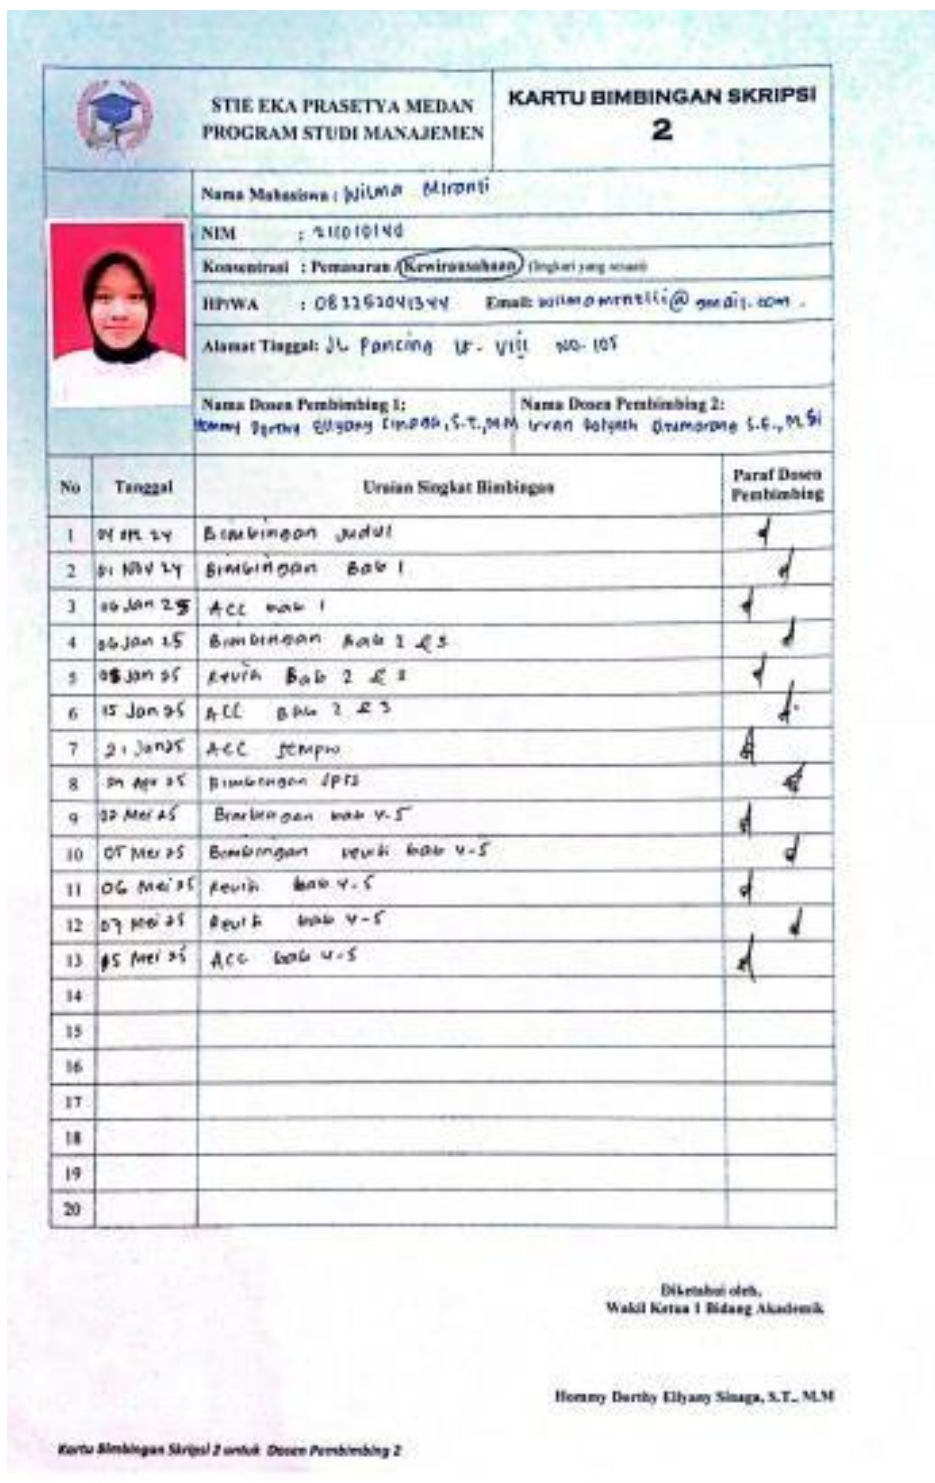 STIE EKA PRASETYA MEDAN
PROGRAM STUDI MANAJEMEN
KARTU BIMBINGAN SKRIPSI
2
Nama Mahasiswa : Wilma Miranti
NIM :
Konsentrasi : Pemasaran / Kewirausahaan (lingkari yang sesuai)
HP/WA : Email:
Alamat Tinggal: JL Pancing Lr. VIII NO. 105
Nama Dosen Pembimbing 1:
Hommy Dorthy Ellyany Sinaga, S.T., M.M
Nama Dosen Pembimbing 2:
Irvan Rolyesh Situmorang S.E., M.Si
No Tanggal Uraian Singkat Bimbingan Paraf Dosen Pembimbing
1 04 24 Bimbingan Judul
2 01 Nov 24 Bimbingan Bab 1
3 06 Jan 25 ACC bab 1
4 06 Jan 25 Bimbingan Bab 2 & 3
5 08 Jan 25 Revisi Bab 2 & 3
6 15 Jan 25 ACC Bab 2 & 3
7 21 Jan 25 ACC sempro
8 Apr 25 Bimbingan SPSS
9 02 Mei 25 Bimbingan bab 4-5
10 05 Mei 25 Bimbingan revisi bab 4-5
11 06 Mei 25 Revisi bab 4-5
12 07 Mei 25 Revisi bab 4-5
13 Mei 25 ACC bab 4-5
14
15
16
17
18
19
20
Diketahui oleh,
Wakil Ketua 1 Bidang Akademik
Hommy Dorthy Ellyany Sinaga, S.T., M.M
Kartu Bimbingan Skripsi 2 untuk Dosen Pembimbing 2